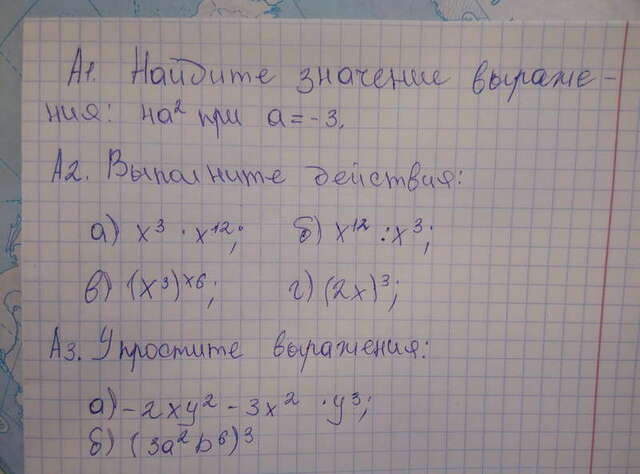 А1. Найдите значение выраже-
ния: 4а² при а = -3.
А2. Выполните действия:
а) х³ · х¹²; б) х¹² : х³;
в) (х³)ˣ⁶; г) (2х)³;
А3. Упростите выражения:
а) -2ху² - 3х² · у³;
б) (3а²b⁶)³